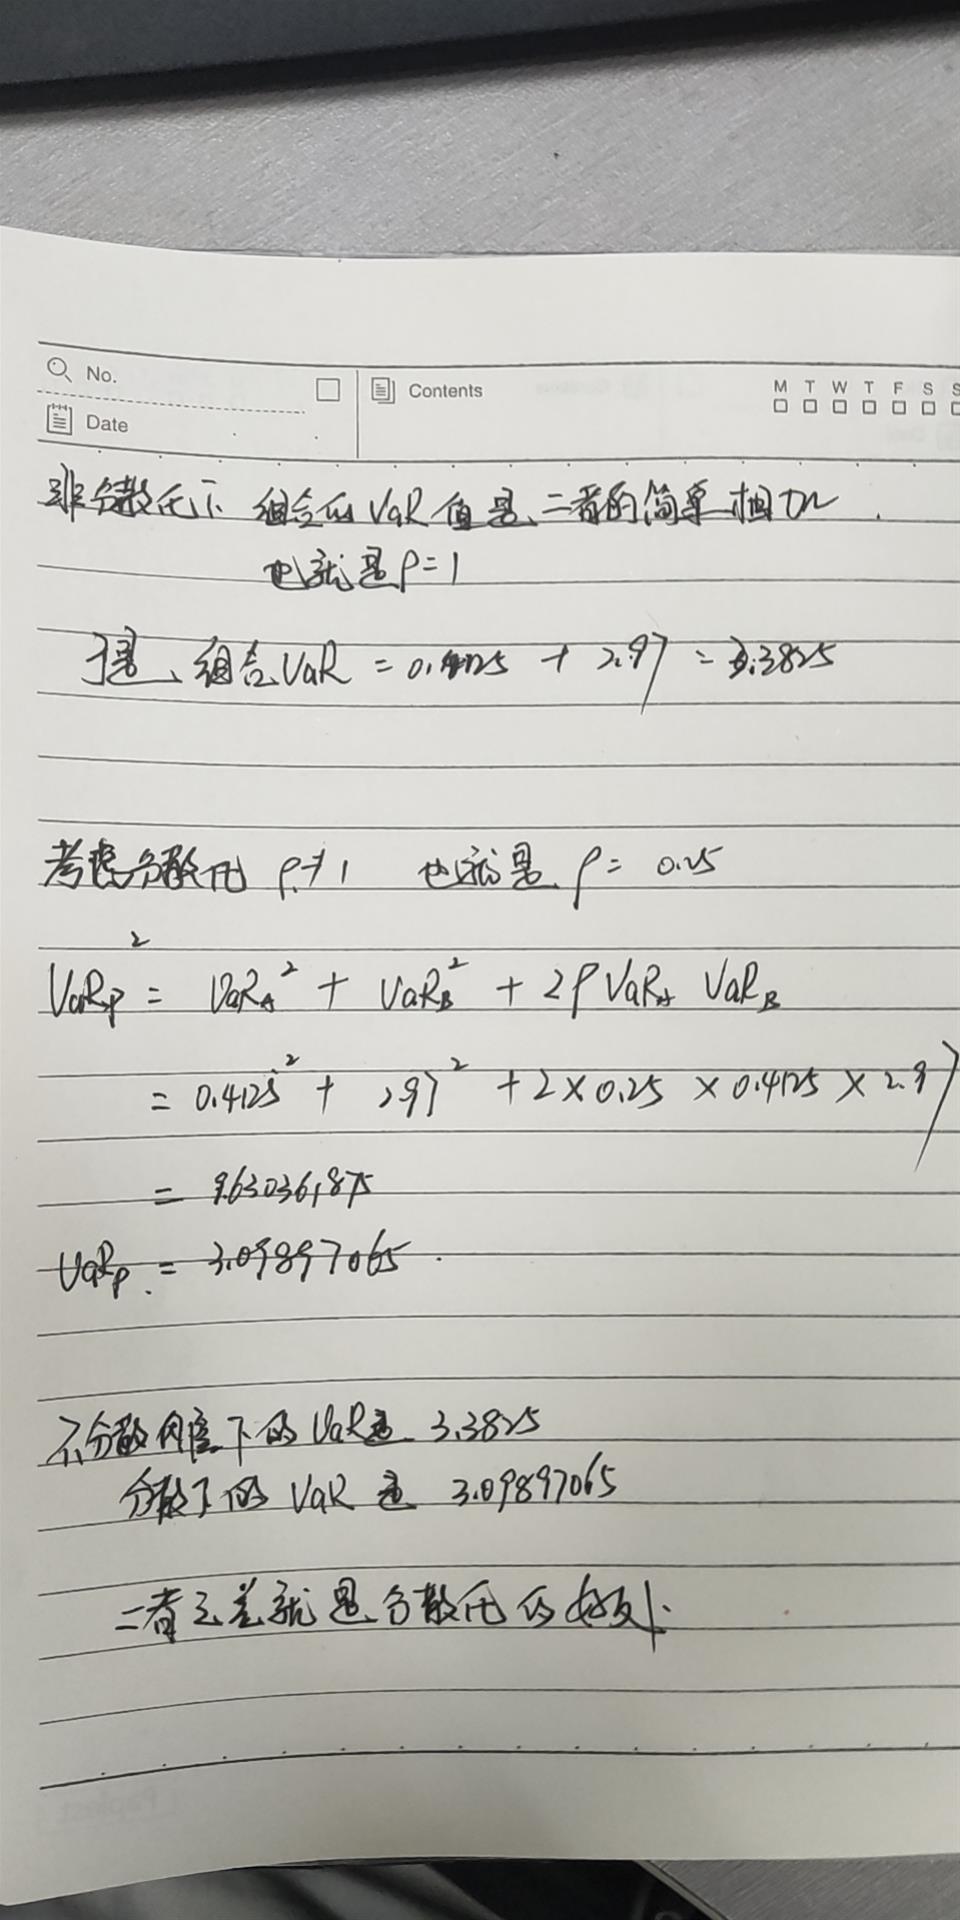 No.
Date
Contents
M T W T F S S
非分散化下 组合的VaR值是二者的简单相加.
也就是ρ=1
于是、组合VaR = 0.4125 + 2.97 = 3.3825
考虑分散化 ρ≠1 也就是 ρ= 0.25
VaRp² = VaRA² + VaRB² + 2ρ VaRA VaRB
= 0.4125² + 2.97² + 2×0.25 ×0.4125 × 2.97
= 9.6036,875
VaRp. = 3.09897065.
不分散 下的VaR是 3.3825
分散下的 VaR 是 3.09897065
二者之差就是分散化的好处.